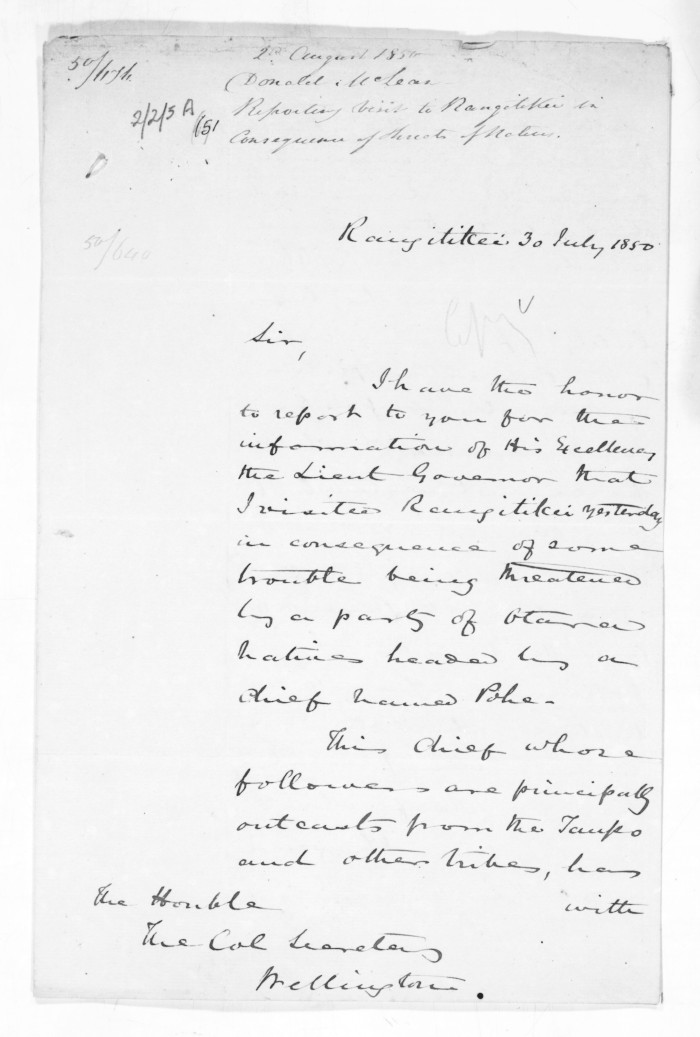 2nd August 1850
Donald McLean
Reporting visit to Rangitikei in
Consequence of threats of Natives.
2/2/3 A
Rangitikei 30 July, 1850
Sir,
I have the honor
to report to you for the
information of His Excellency
the Lieut Governor that
I visited Rangitikei yesterday
in consequence of some
trouble being threatened
by a party of
natives headed by a
chief named Pohe -
This chief whose
followers are principally
outcasts from the Taupo
and other tribes, has
with
The Honble
The Col Secretary
Wellington.